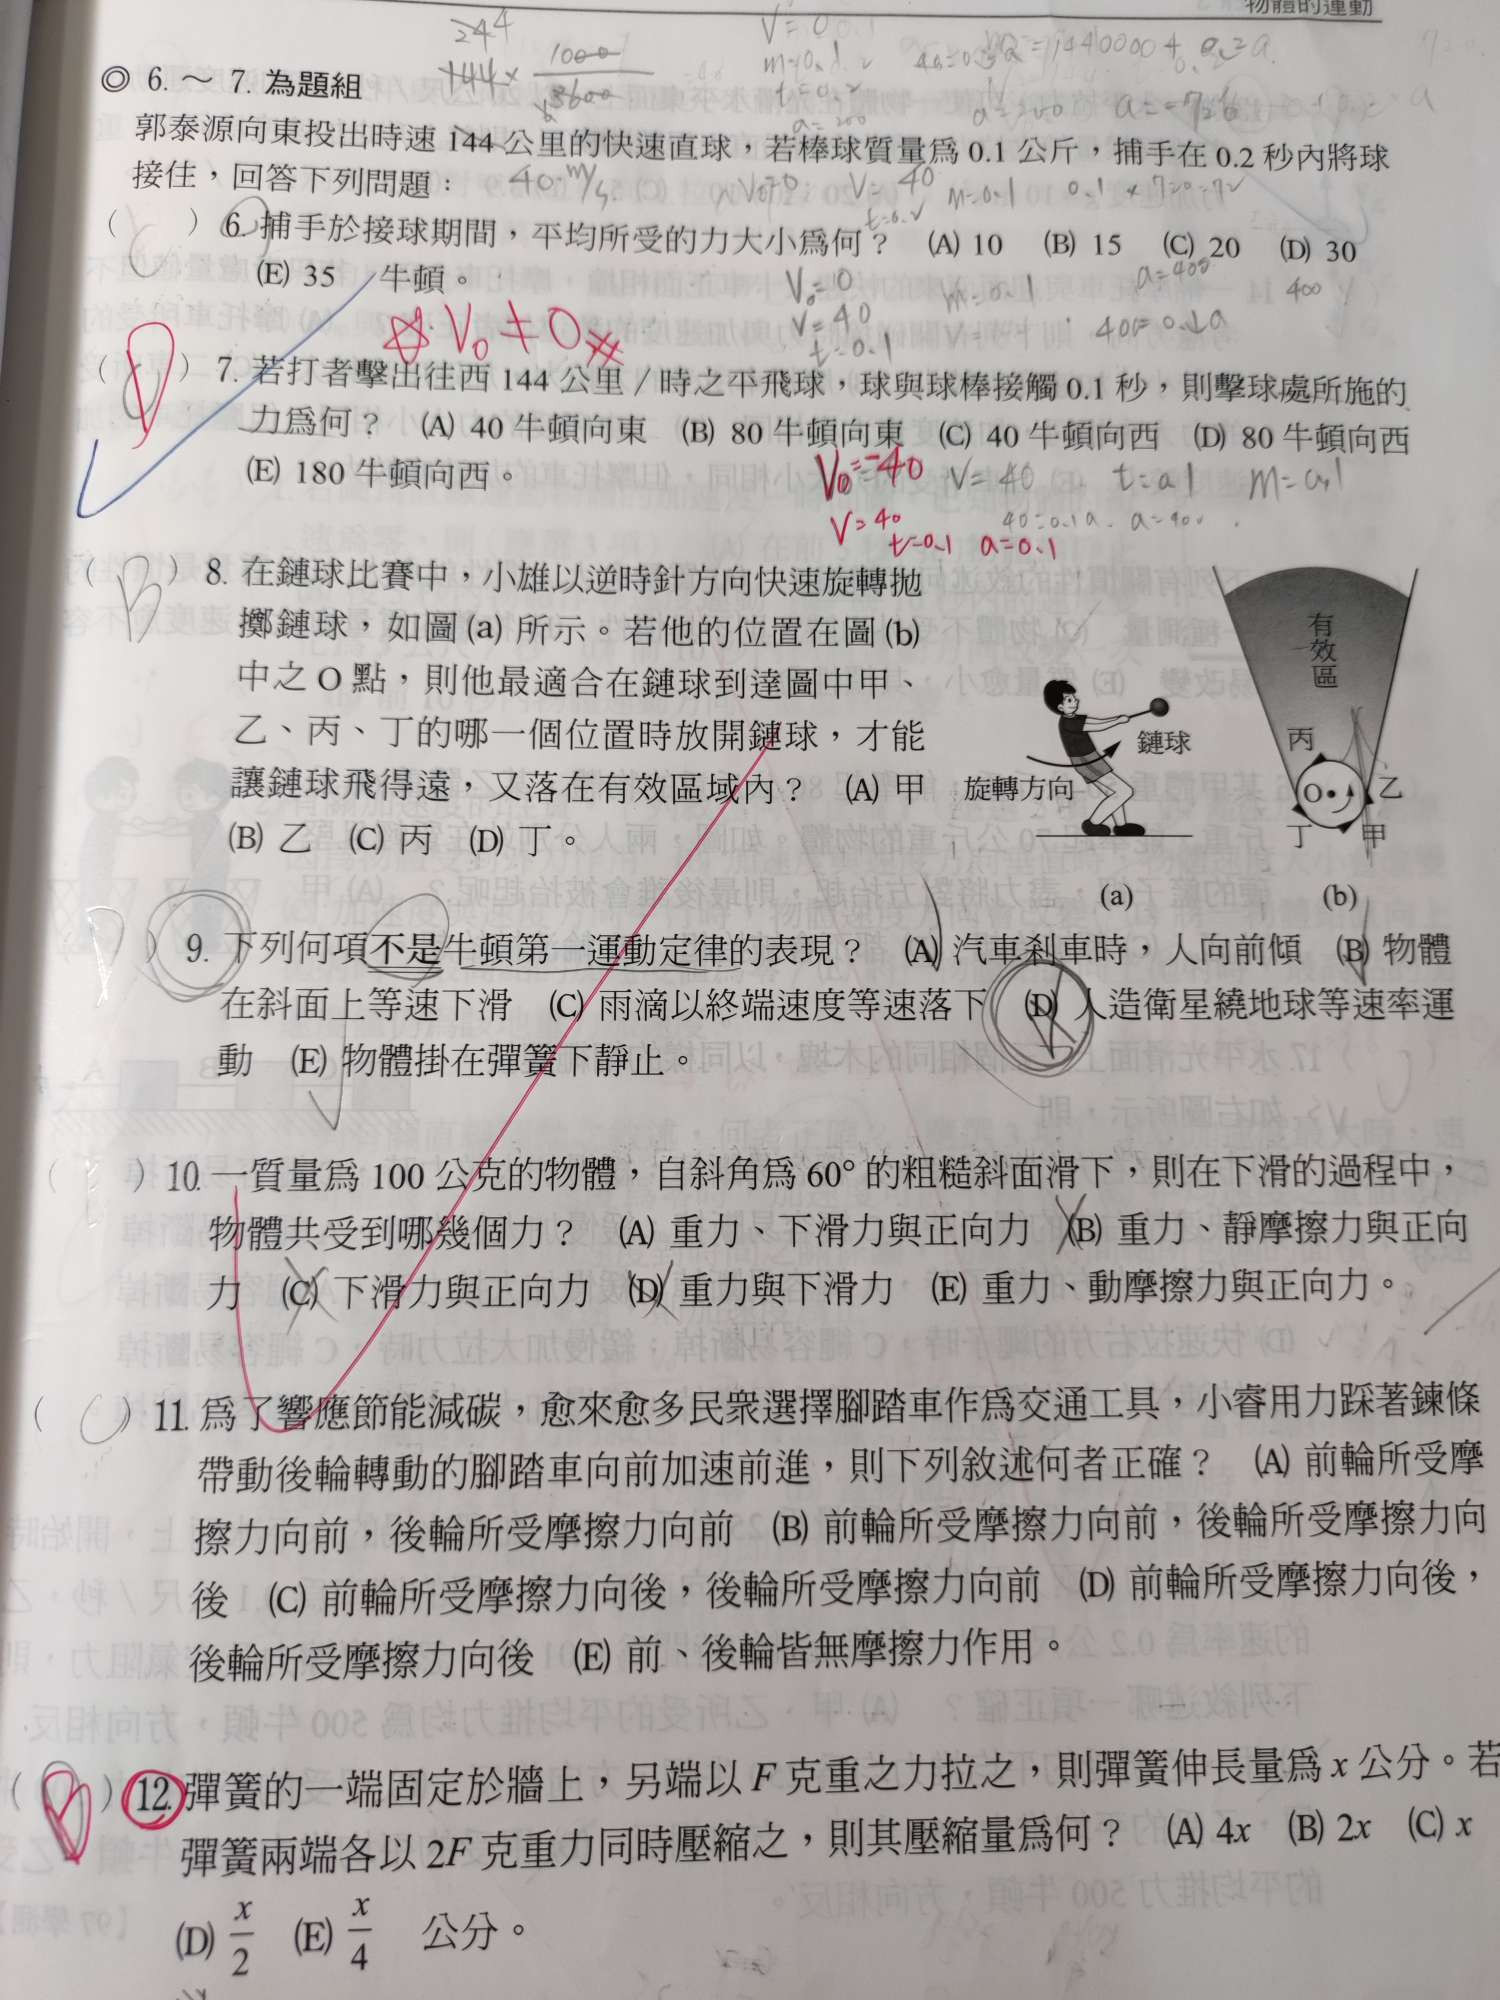 物體的運動
144
1000
3600
◎ 6. ～ 7. 為題組
郭泰源向東投出時速 144 公里的快速直球，若棒球質量為 0.1 公斤，捕手在 0.2 秒內將球
接住，回答下列問題：
40 m/s
( C ) 6. 捕手於接球期間，平均所受的力大小為何？ (A) 10 (B) 15 (C) 20 (D) 30
(E) 35 牛頓。
V₀=10 m=0.1 a=400 400
V=40
t=0.1
V₀≠0
( D ) 7. 若打者擊出往西 144 公里／時之平飛球，球與球棒接觸 0.1 秒，則擊球處所施的
力為何？ (A) 40 牛頓向東 (B) 80 牛頓向東 (C) 40 牛頓向西 (D) 80 牛頓向西
(E) 180 牛頓向西。
V₀=-40 V=40
V=40 40=0.1a. a=400
t=0.1 a=0.1
( B ) 8. 在鏈球比賽中，小雄以逆時針方向快速旋轉拋
擲鏈球，如圖(a)所示。若他的位置在圖(b)
中之 O 點，則他最適合在鏈球到達圖中甲、
乙、丙、丁的哪一個位置時放開鏈球，才能
讓鏈球飛得遠，又落在有效區域內？ (A) 甲
(B) 乙 (C) 丙 (D) 丁。
鏈球
旋轉方向
(a)
有效區
丙
O
乙
丁
甲
(b)
( D ) 9. 下列何項不是牛頓第一運動定律的表現？ (A) 汽車剎車時，人向前傾 (B) 物體
在斜面上等速下滑 (C) 雨滴以終端速度等速落下 (D) 人造衛星繞地球等速率運
動 (E) 物體掛在彈簧下靜止。
( ) 10. 一質量為 100 公克的物體，自斜角為 60° 的粗糙斜面滑下，則在下滑的過程中，
物體共受到哪幾個力？ (A) 重力、下滑力與正向力 (B) 重力、靜摩擦力與正向
力 (C) 下滑力與正向力 (D) 重力與下滑力 (E) 重力、動摩擦力與正向力。
( C ) 11. 為了響應節能減碳，愈來愈多民眾選擇腳踏車作為交通工具，小睿用力踩著鍊條
帶動後輪轉動的腳踏車向前加速前進，則下列敘述何者正確？ (A) 前輪所受摩
擦力向前，後輪所受摩擦力向前 (B) 前輪所受摩擦力向前，後輪所受摩擦力向
後 (C) 前輪所受摩擦力向後，後輪所受摩擦力向前 (D) 前輪所受摩擦力向後，
後輪所受摩擦力向後 (E) 前、後輪皆無摩擦力作用。
( B ) 12. 彈簧的一端固定於牆上，另端以 F 克重之力拉之，則彈簧伸長量為 x 公分。若
彈簧兩端各以 2F 克重力同時壓縮之，則其壓縮量為何？ (A) 4x (B) 2x (C) x
(D) x/2 (E) x/4 公分。